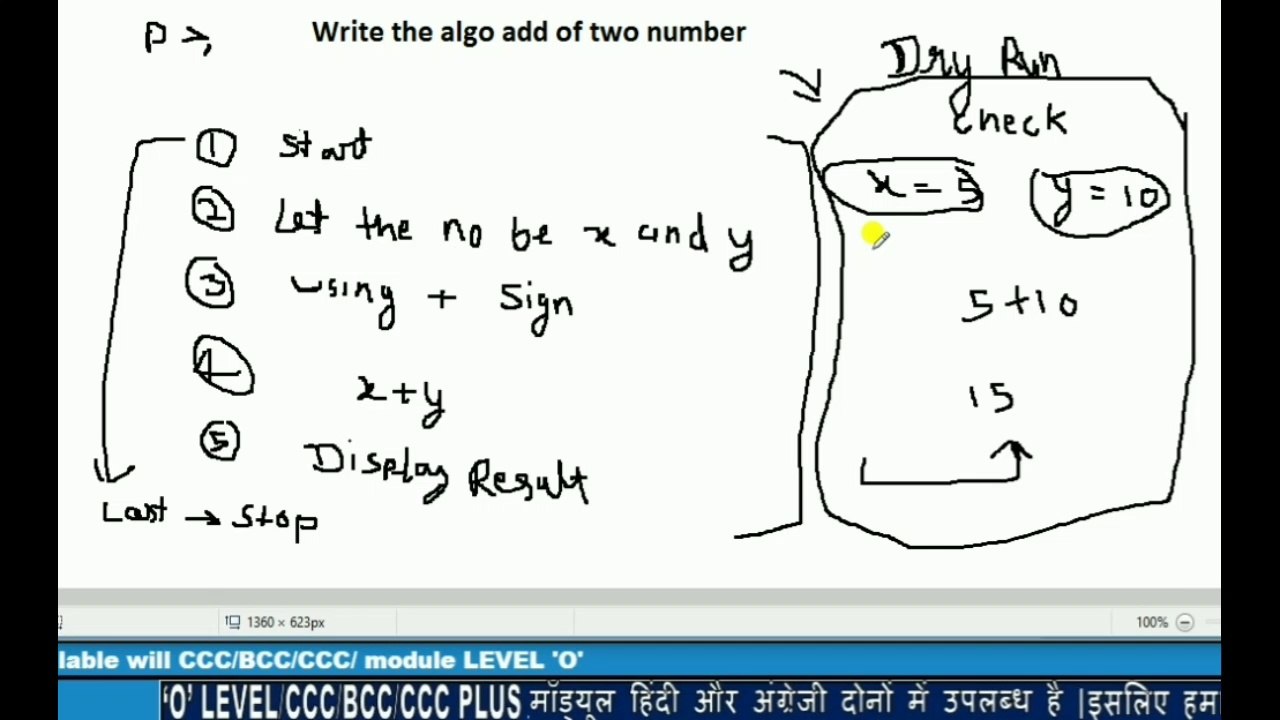 P →,
Write the algo add of two number
Dry Run
check
① Start
② Let the no be x and y
③ using + Sign
④ x+y
⑤ Display Result
Last → Stop
x = 5
y = 10
5 + 10
15
1360 × 623px
100%
lable will CCC/BCC/CCC/ module LEVEL 'O'
'O' LEVEL/CCC/BCC/CCC PLUS मॉड्यूल हिंदी और अंग्रेजी दोनों में उपलब्ध है |इसलिए हम